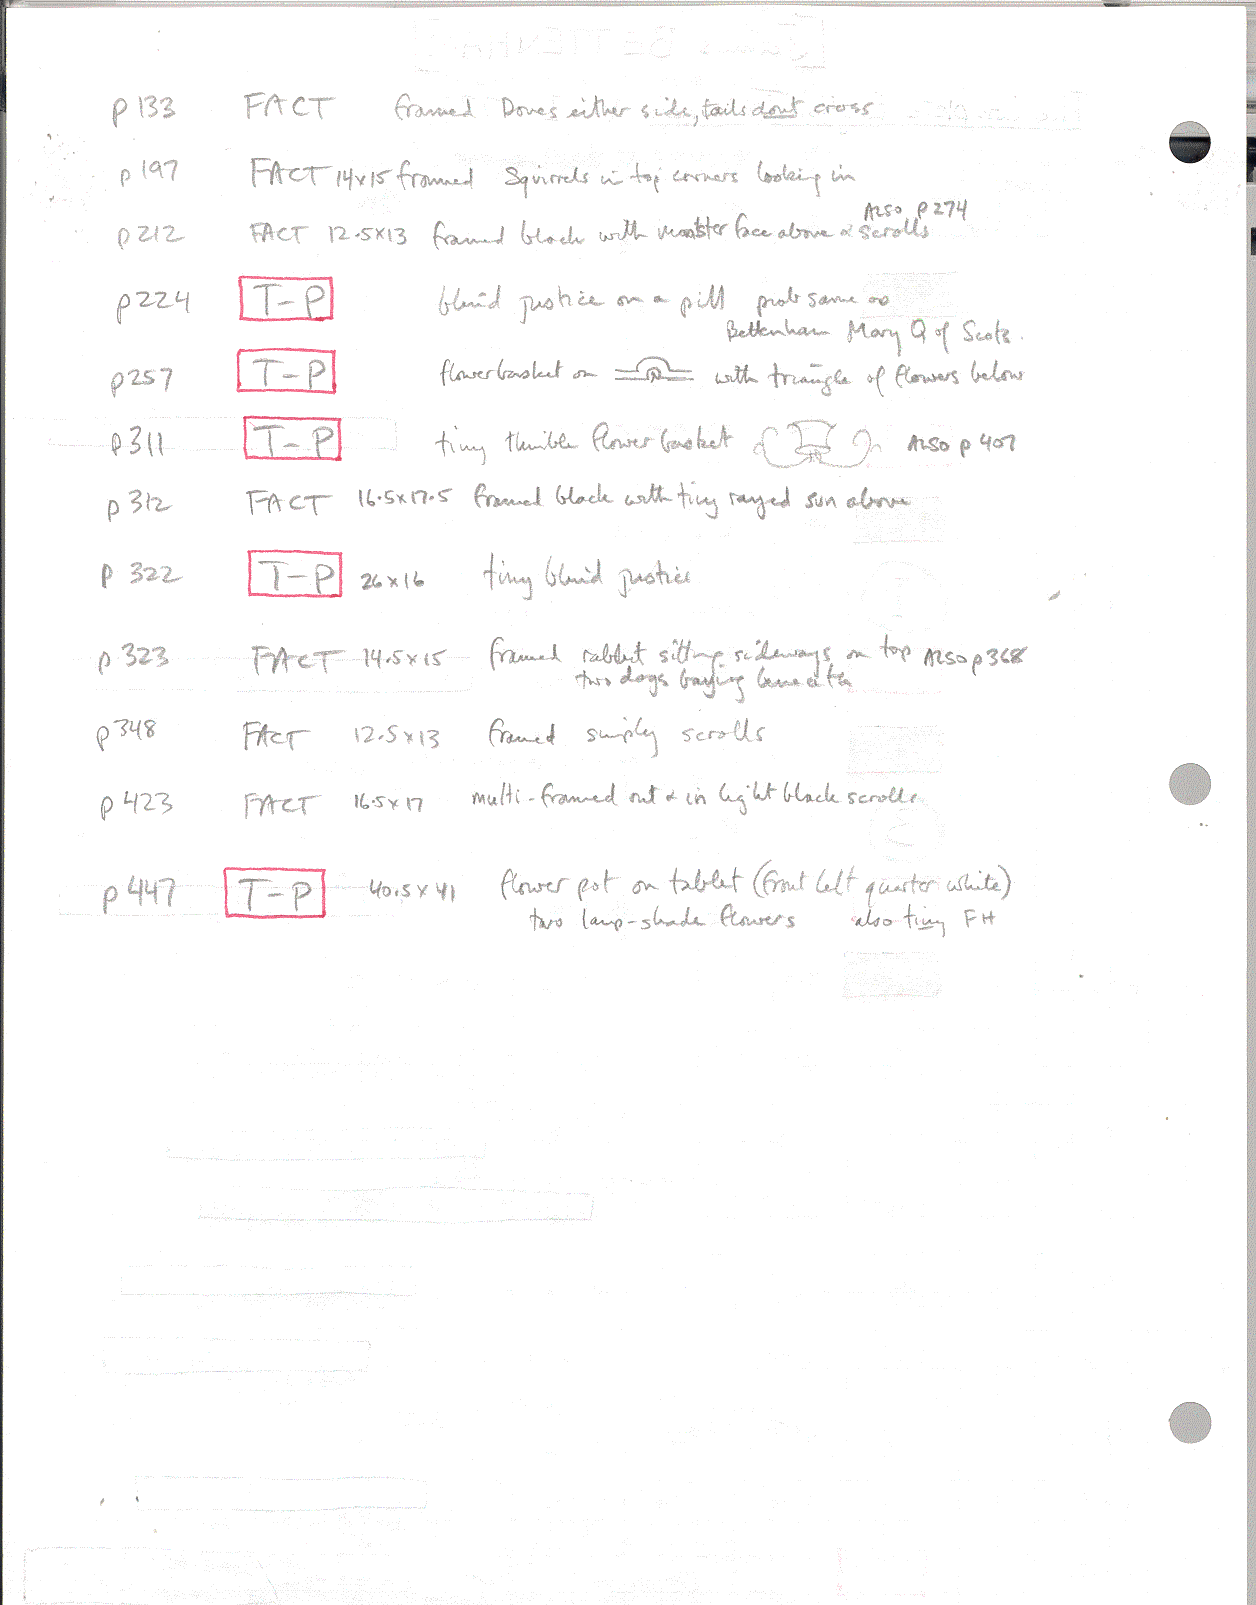 p 133 FACT framed Doves either side, tails dont cross
p 197 FACT 14x15 framed Squirrels in top corners looking in
ALSO p 274
p 212 FACT 12.5x13 framed block with monster face above & scrolls
p 224 T-P blind justice on a pill prob same as
Bettenham Mary Q of Scots.
p 257 T-P flowerbasket on with triangle of flowers below
p 311 T-P tiny thimble flower basket ALSO p 407
p 312 FACT 16.5x17.5 framed block with tiny rayed sun above
p 322 T-P 26x16 tiny blind justice
p 323 FACT 14.5x15 framed rabbit sitting sideways on top ALSO p 368
two dogs baying beneath
p 348 FACT 12.5x13 framed simply scrolls
p 423 FACT 16.5x17 multi-framed out & in light black scrolls
p 447 T-P 40.5x41 flower pot on tablet (front left quarter white)
two lamp-shade flowers also tiny FH